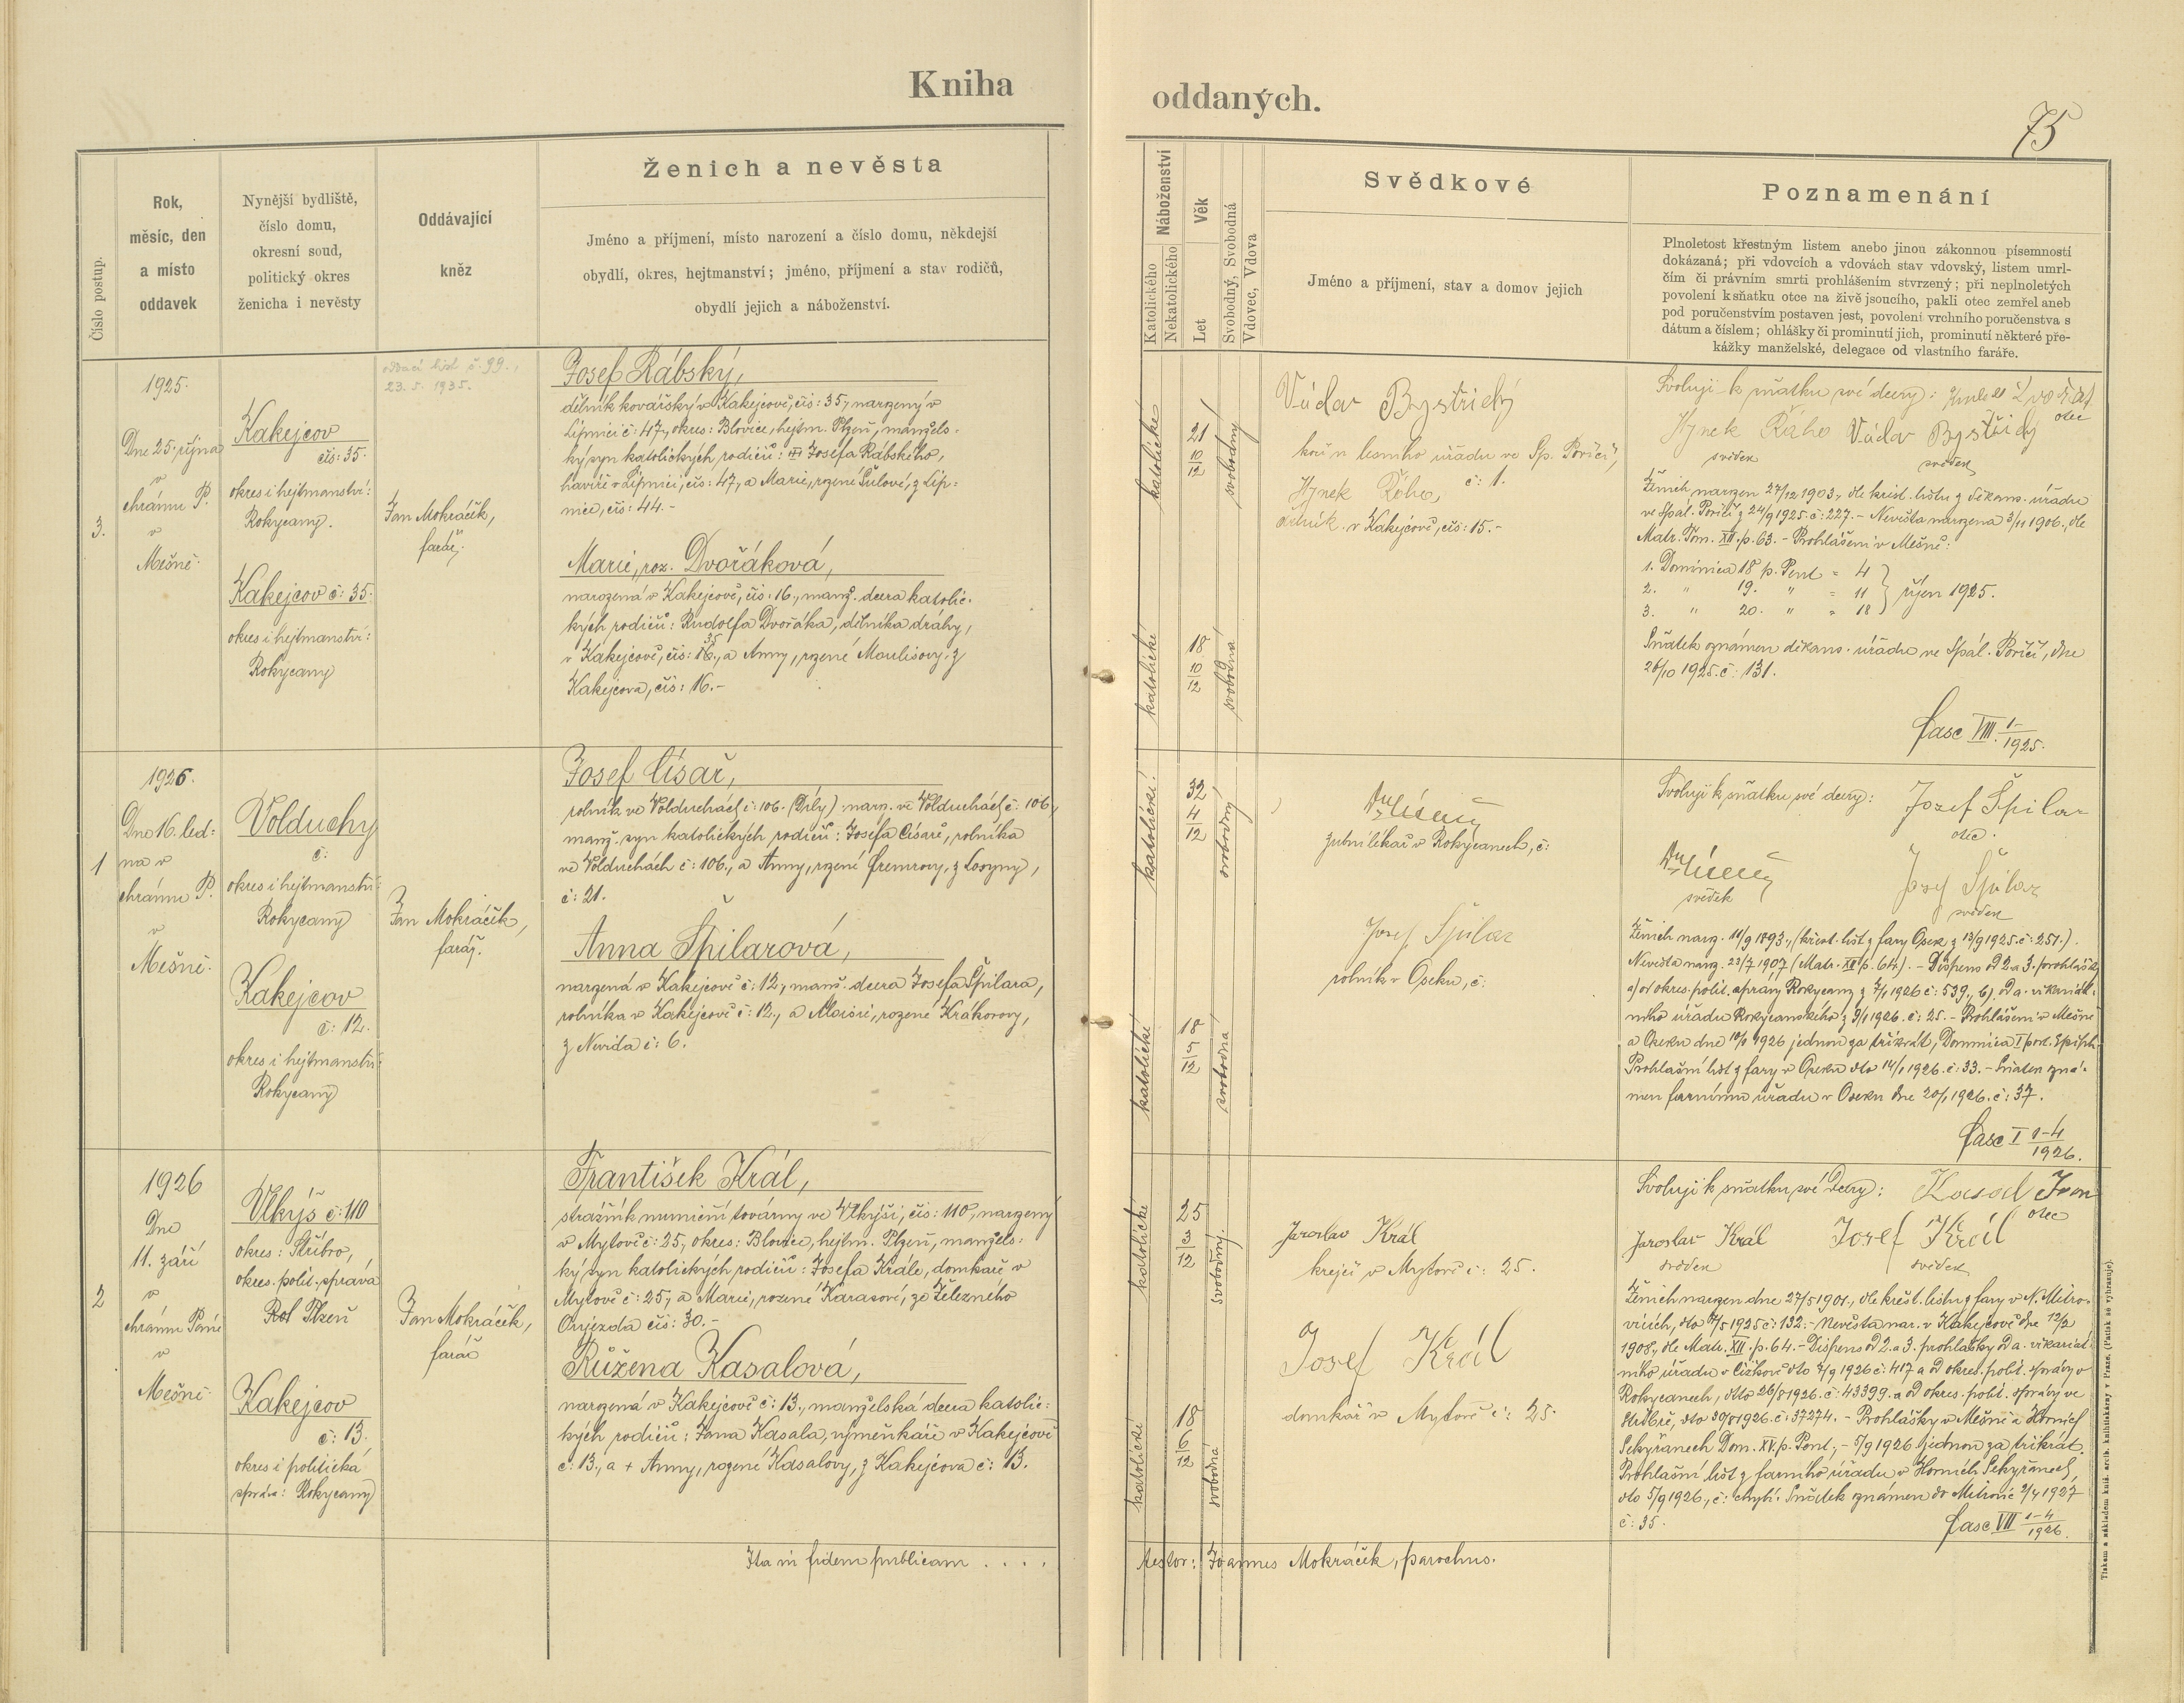 Kniha
oddaných.
75
Číslo postup.
Rok,
měsíc, den
a místo
oddavek
Nynější bydliště,
číslo domu,
okresní soud,
politický okres
ženicha i nevěsty
Oddávající
kněz
Ženich a nevěsta
Jméno a příjmení, místo narození a číslo domu, někdejší
obydlí, okres, hejtmanství; jméno, příjmení a stav rodičů,
obydlí jejich a náboženství.
Náboženství
Katolického
Nekatolického
Věk
Let
Svobodný, Svobodná
Vdovec, Vdova
Svědkové
Jméno a příjmení, stav a domov jejich
Poznamenání
Plnoletost křestným listem anebo jinou zákonnou písemností
dokázaná; při vdovcích a vdovách stav vdovský, listem umrl-
čím či právním smrti prohlášením stvrzený; při neplnoletých
povolení k sňatku otce na živě jsoucího, pakli otec zemřel aneb
pod poručenstvím postaven jest, povolení vrchního poručenstva s
dátum a číslem; ohlášky či prominutí jich, prominutí některé pře-
kážky manželské, delegace od vlastního faráře.
3.
1925.
Dne 25. října
v
chrámu P.
v
Mešně.
Kakejcov
čís: 35.
okres i hejtmanství:
Rokycany.
Kakejcov č: 35.
okres i hejtmanství:
Rokycany
oddací list č. 99.,
23. 5. 1935.
Jan Mokráček,
farář.
Josef Rábský,
dělník kovářský v Kakejcově, čís: 35, narozený v
Lipnici č: 47., okres: Blovice, hejtm. Plzeň, manžels-
ký syn katolických rodičů: Josefa Rábského,
havíře v Lipnici, čís: 47, a Marie, rozené Šulové, z Lip-
nice, čís: 44.-
Marie, roz. Dvořáková,
narozená v Kakejcově, čís: 16., manž. dcera katolic-
kých rodičů: Rudolfa Dvořáka, dělníka dráhy,
v Kakejcově, čís: 16., a Anny, rozené Moulisovy, z
35
Kakejcova, čís: 16.-
katolické
21 10/12
svobodný
katolické
18 10/12
svobodná
Václav Bystřický
koří n lesního úřadu ve Sp. Poříčí,
č: 1.
Hynek Řáha,
dělník v Kakejcově, čís: 15.-
Svoluji k sňatku své dcery:
otec
Hynek Řáha Václav Bystřický
svědek svědek
Ženich narozen 27/12 1903, dle křest. listu z děkans. úřadu
ve Spál. Poříčí z 24/9 1925. č: 227. - Nevěsta narozena 3/11 1906., dle
Matr. Tom. XII. p. 63. - Prohlášeni v Mešně:
1. Dominica 18 p. Pent = 4
2. " 19. " = 11 } říjen 1925.
3. " 20. " = 18
Sňatek oznámen děkans. úřadu ve Spál. Poříčí, dne
26/10 1925. č: 131.
fasc VIII. 1-/1925.
1
1926.
Dne 16. led-
na v
chrámu P.
v
Mešně.
Volduchy
č:
okres i hejtmanství:
Rokycany
Kakejcov
č: 12.
okres i hejtmanství:
Rokycany
Jan Mokráček,
farář.
Josef Císař,
rolník ve Volduchách č: 106. (Díly), nar. ve Volduchách č: 106,
manž. syn katolických rodičů: Josefa Císaře, rolníka
ve Volduchách č: 106., a Anny, rozené Gremrovy, z Losyny,
č: 21.
Anna Špilarová,
narozená v Kakejcově č: 12., manž. dcera Josefa Špilara,
rolníka v Kakejcově č: 12., a Aloisie, rozené Krákorovy,
z Nevida č: 6.
katolické
32 4/12
svobodný
katolické
18 5/12
svobodná
zubní lékař v Rokycanech, č:
Josef Špilar
rolník v Oseku, č:
Svoluji k sňatku své dcery: Jozef Špilar
otec.
Josef Špilar
svědek svědek
Ženich naroz. 11/9 1893., (křest. list z fary Osek z 13/9 1925. č: 251.).
Nevěsta naroz. 23/7 1907 (Matr. XII p. 64.). - Dispens od 2. a 3. prohlášek
a) od okres. polit. správy Rokycany z 7/1 1926 č: 539., b) od a. vikariát-
ního úřadu Rokycanského z 9/1 1926. č: 25. - Prohlášeni v Mešně
a Oseku dne 10/1 1926 jednou za třikrát, Dominica I post. Epiph.
Prohlašní list z fary v Oseku dto 14/1 1926. č: 33. - Sňatek ozná-
men farnímu úřadu v Oseku dne 20/1 1926. č: 37.
fasc I 1-4/1926.
2
1926
Dne
11. září
v
chrámu Páně
v
Mešně.
Vlkýš č: 110
okres: Stříbro,
okres. polit. správa
Plzeň
Kakejcov
č: 13.
okres i politická
správa: Rokycany
Jan Mokráček,
farář
František Král,
strážník muniční továrny ve Vlkýši, čís: 110, narozený
v Mytově č: 25, okres: Blovice, hejtm. Plzeň, manžels-
ký syn katolických rodičů: Josefa Krále, domkáře v
Mytově č: 25, a Marie, rozené Karasové, ze Železného
Oujezda čís: 30.-
Růžena Kasalová,
narozená v Kakejcově č: 13., manželská dcera katolic-
kých rodičů: Jana Kasala, výměnkáře v Kakejcově
č: 13., a + Anny, rozené Kasalovy, z Kakejcova č: 13.
katolické
25 3/12
svobodný.
katolické
18 6/12
svobodná
Jaroslav Král
krejčí v Mytově č: 25.
Josef Král
domkář v Mytově č: 25.
Svoluji k sňatku své dcery: Kasal Jan
otec
Jaroslav Král Josef Král
svědek svědek
Ženich narozen dne 27/5 1901., dle křest. listu z fary v N. Mitro-
vicích, dto 7/5 1925 č: 132.- Nevěsta nar. v Kakejcově dne 12/2
1908., dle Matr. XII. p. 64. - Dispens od 2. a 3. prohlášky od a. vikariát-
ního úřadu v Čížkově dto 7/9 1926 č: 417 a od okres. polit. správy v
Rokycanech, dtto 26/8 1926. č: 43399. a od okres. polit. správy ve
Stříbře, dto 30/8 1926. č: 37274. - Prohlášky v Mešně a Horních
Sekyřanech Dom. XV. p. Pent, - 5/9 1926. jednou za třikrát.
Prohlašní list z farního úřadu v Horních Sekyřanech,
dto 5/9 1926., č: chybí. Sňatek oznámen do Mitrovic 2/4 1927
č: 35.
fasc VIII 1-4/1926.
Ita in fidem publicam . . . .
testor: Joannes Mokráček, parochus.
Tiskem a nákladem knih. arcib. knihtiskárny v Praze. (Patisk se vyhrazuje).